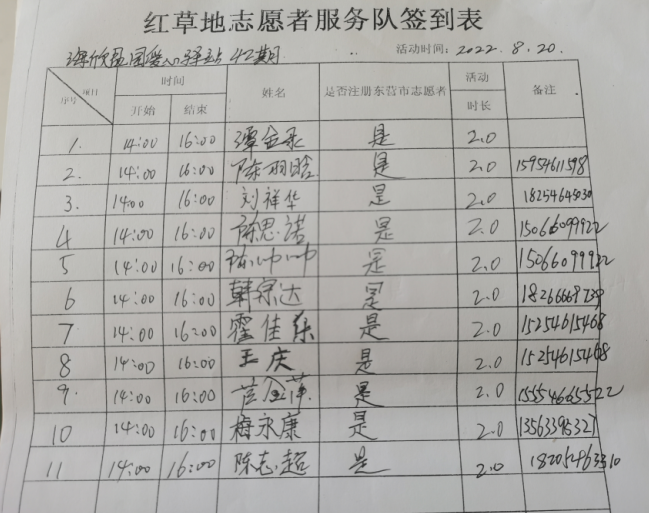 红草地志愿者服务队签到表
海欣园关爱心驿站 42期 活动时间: 2022.8.20.
序号 项目 时间 姓名 是否注册东营市志愿者 活动 备注
开始 结束 时长
1. 14:00 16:00 谭金录 是 2.0
2. 14:00 16:00 陈丽晗 是 2.0 15954611598
3. 14:00 16:00 刘祥华 是 2.0 18254645030
4 14:00 16:00 陈思诺 是 2.0 15066099922
5 14:00 16:00 陈帅帅 是 2.0 15066099922
6 14:00 16:00 韩宗达 是 2.0
7 14:00 16:00 霍佳乐 是 2.0 15254615468
8 14:00 16:00 王庆 是 2.0 15254615468
9. 14:00 16:00 是 2.0 15554665522
10 14:00 16:00 梅永康 是 2.0
11 14:00 16:00 陈志超 是 2.0 18205463310